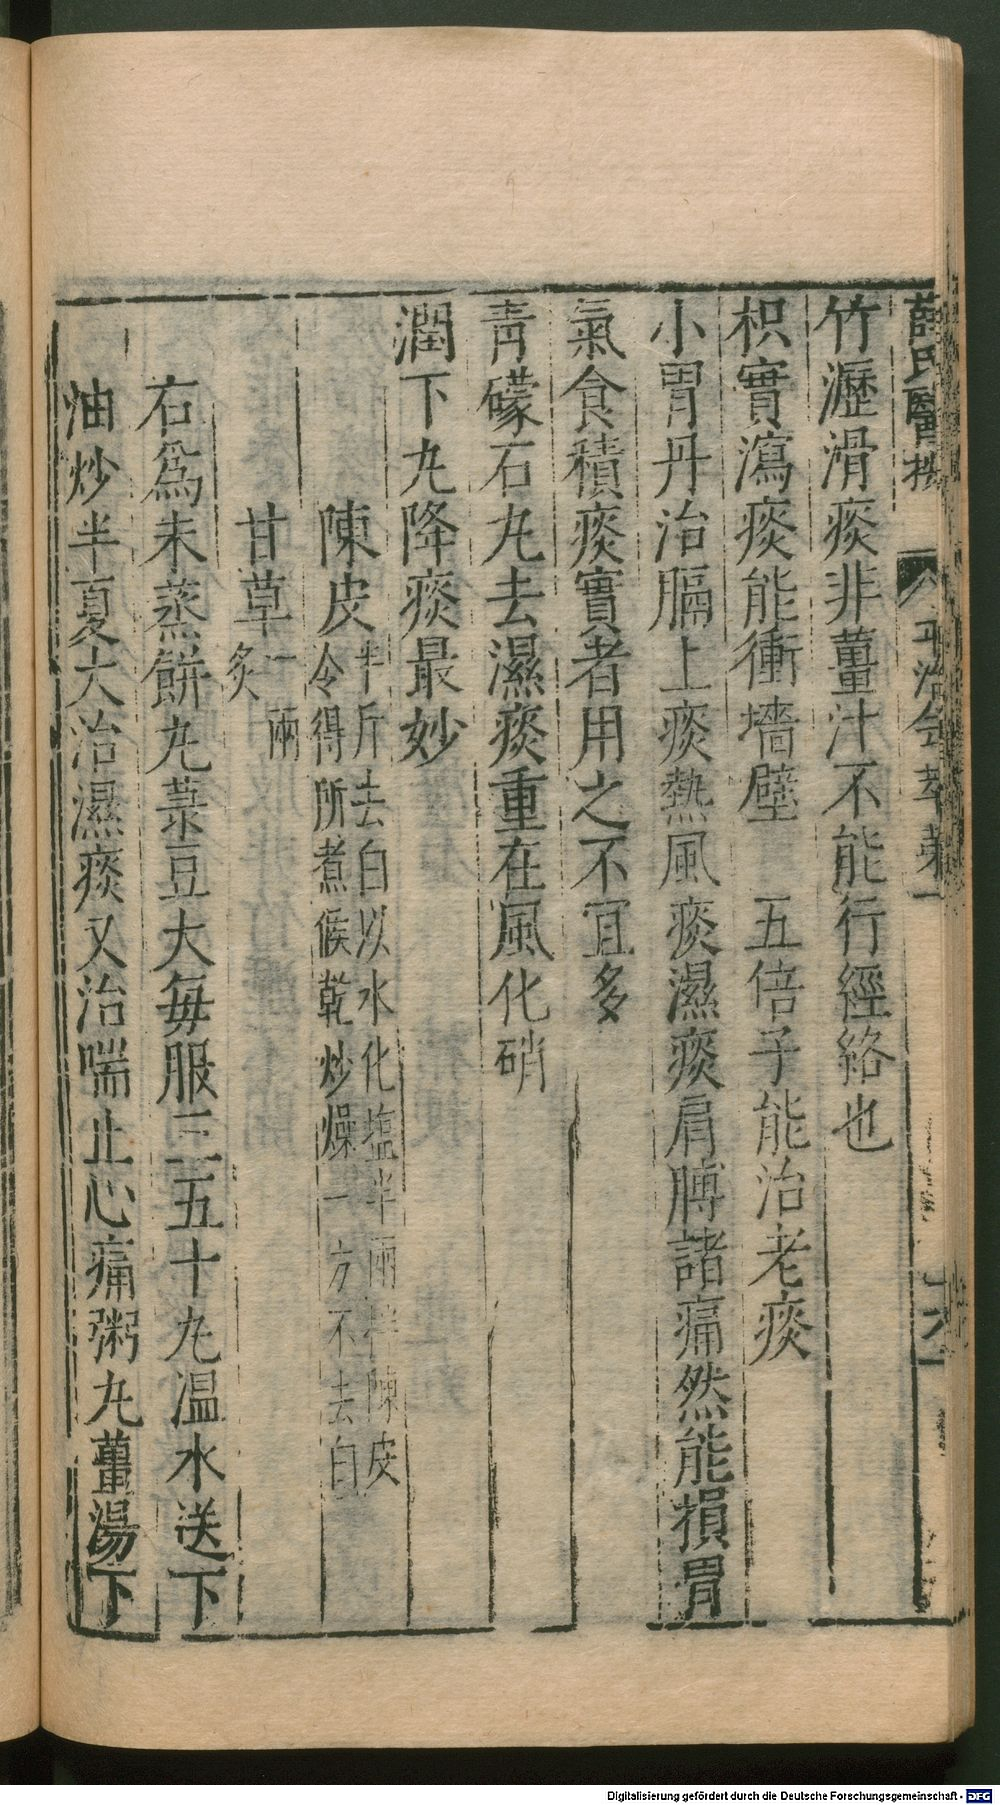 薛氏醫按 平治會萃卷一
竹瀝滑痰非薑汁不能行經絡也
枳實瀉痰能衝墻壁 五倍子能治老痰
小胃丹治膈上痰熱風痰濕痰肩膊諸痛然能損胃
氣食積痰實者用之不宜多
青礞石丸去濕痰重在風化硝
潤下丸降痰最妙
陳皮半斤去白以水化塩半兩拌陳皮
令得所煮候乾炒燥一方不去白
甘草一兩
炙
右爲末蒸餅丸菉豆大每服三五十丸温水送下
油炒半夏大治濕痰又治喘止心痛粥丸薑湯下
Digitalisierung gefördert durch die Deutsche Forschungsgemeinschaft - DFG